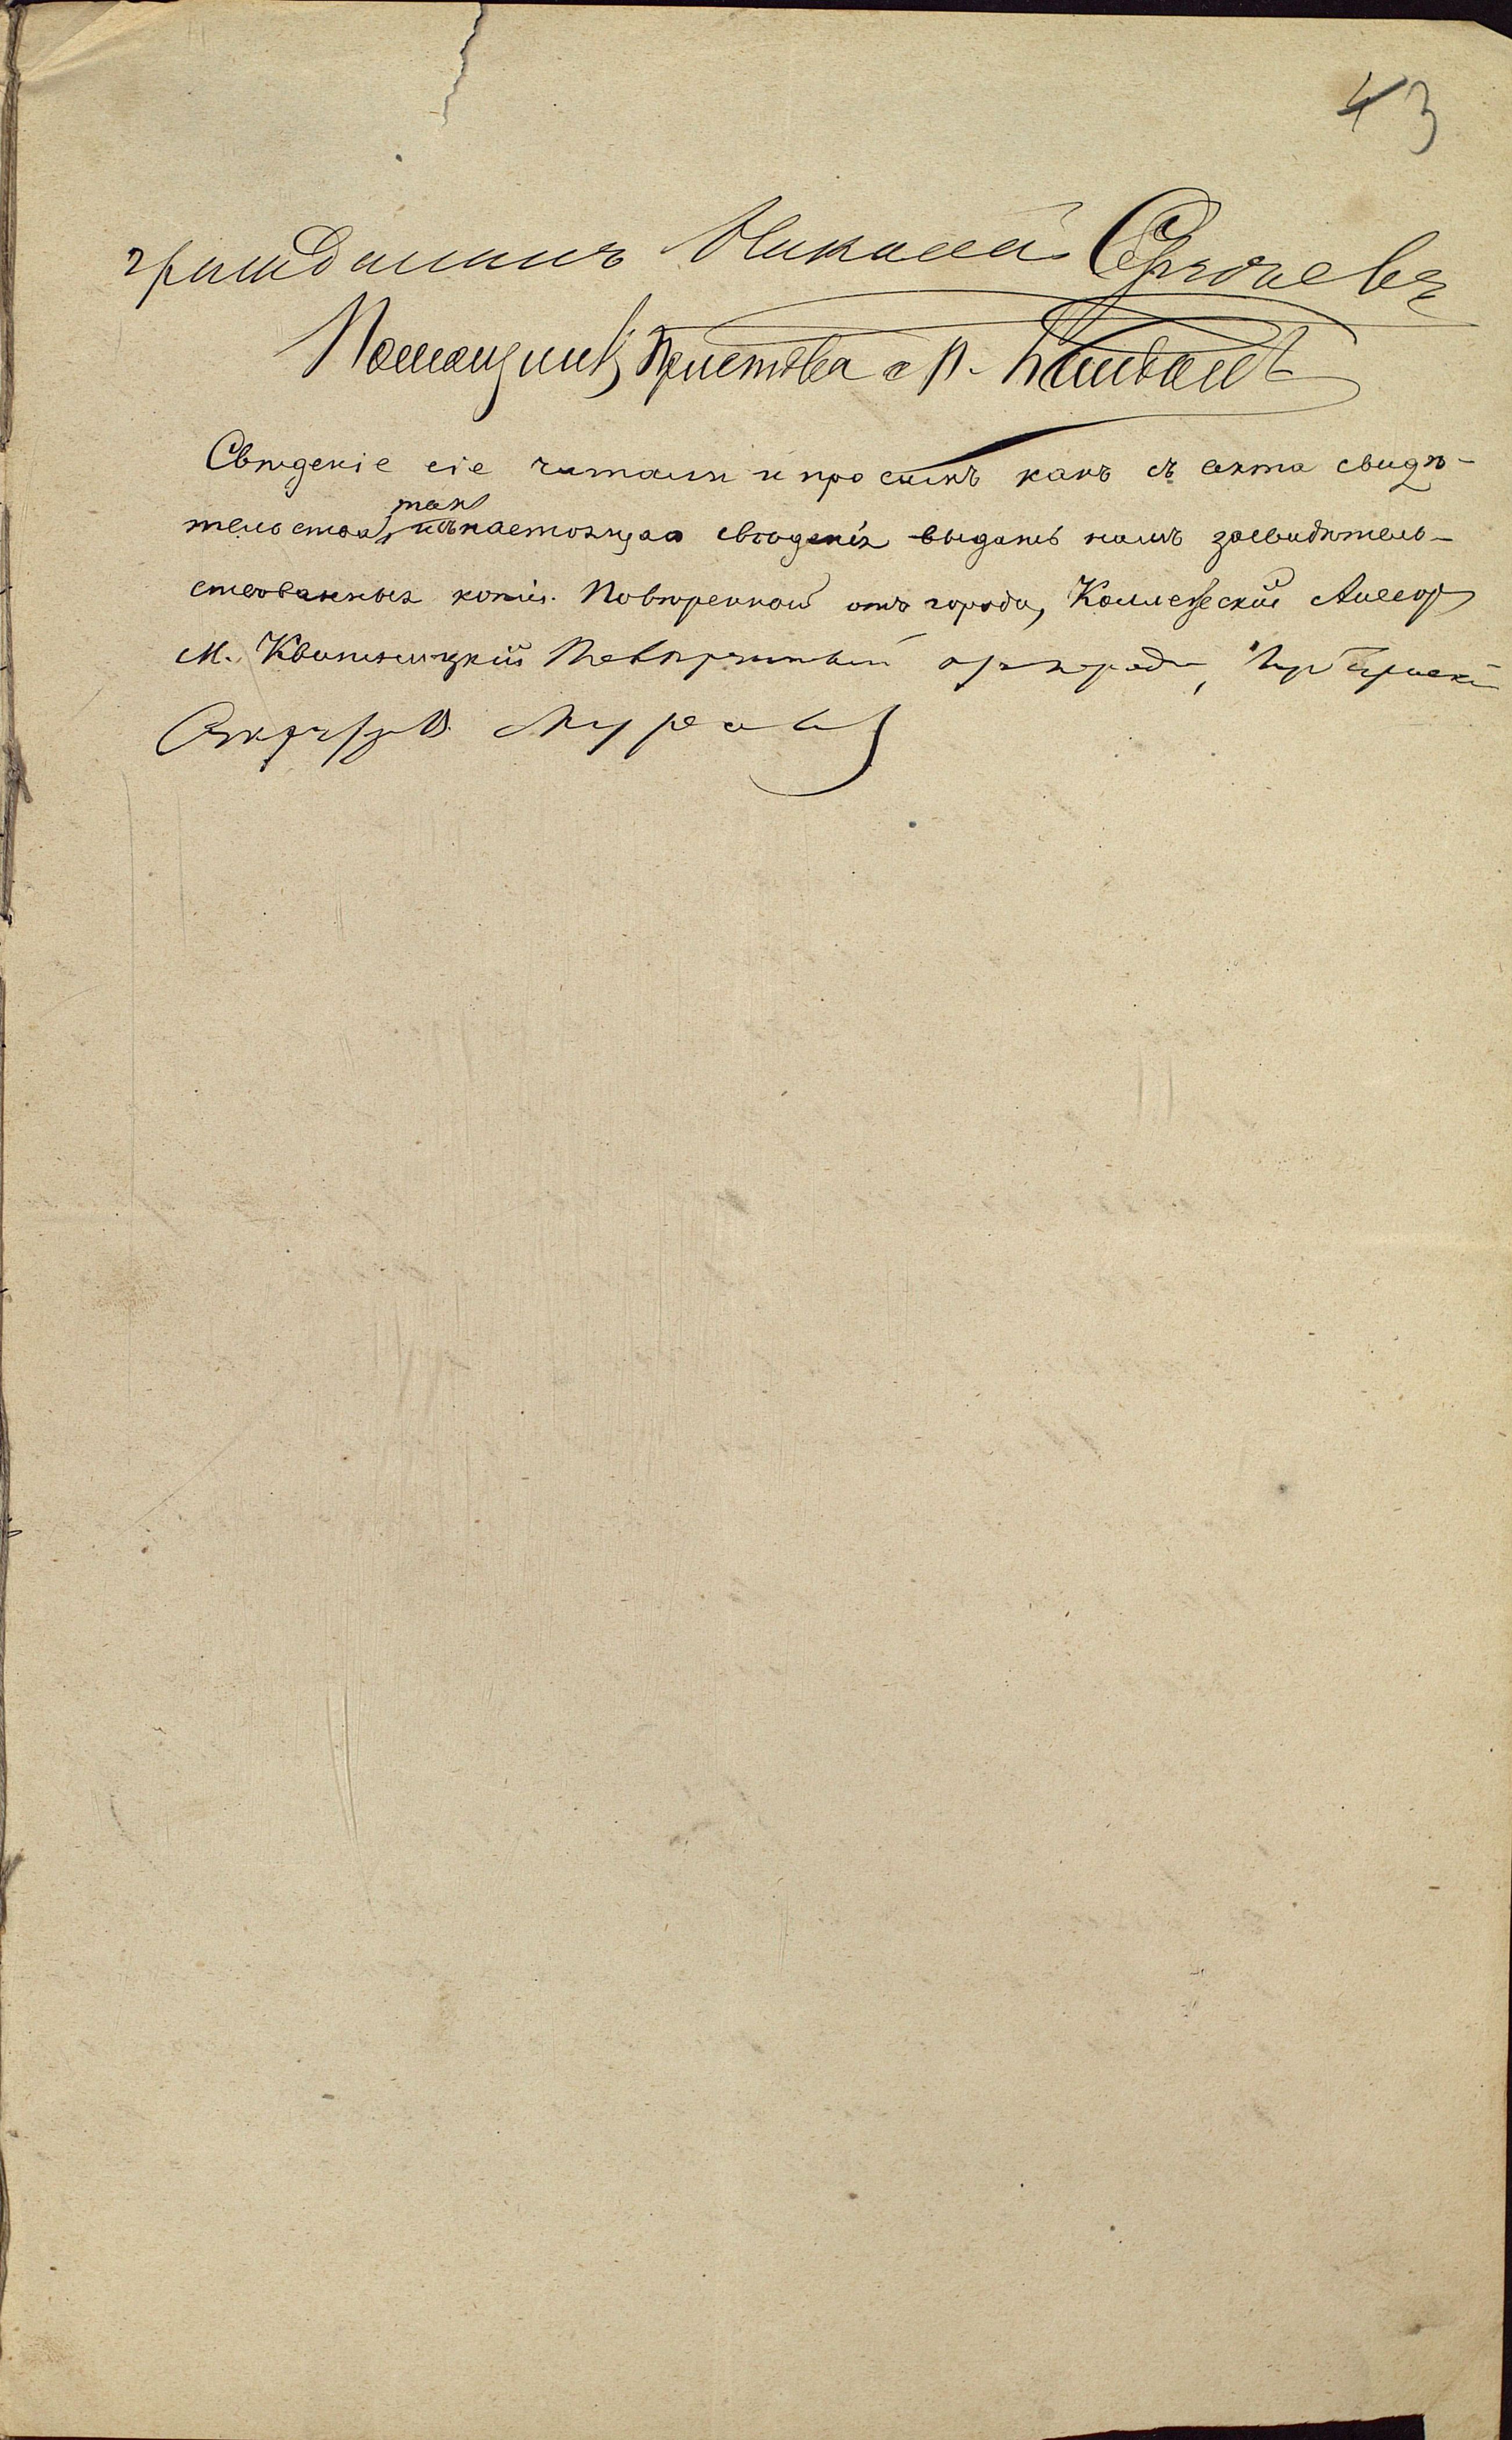 43
гражданинъ Николай Сергѣевъ
Помощникъ Пристава
Свѣдѣніе сіе читали и просимъ какъ съ акта свидѣ-
тельства, такъ настоящаго свѣдѣнія выдать намъ засвидѣтель-
ствованныя копіи. Повѣренный отъ города, Коллежскій Ассесоръ
М. Квитницкій Повѣренный отъ города, Губернскій
Секретарь